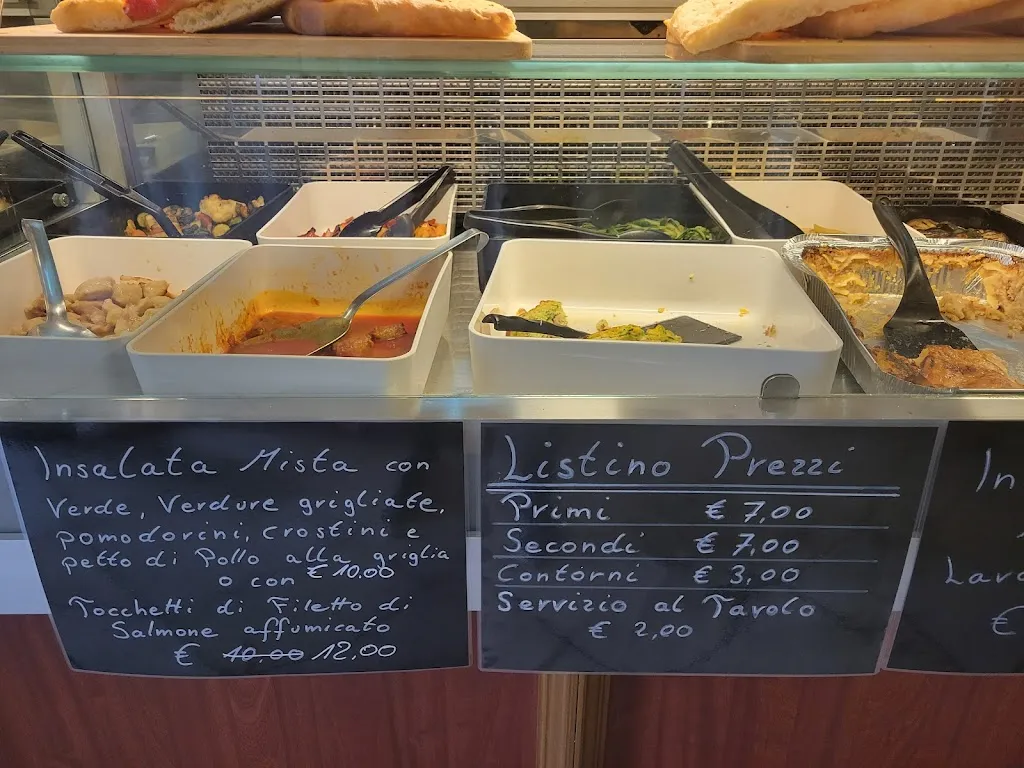 Insalata Mista con
Verde, Verdure grigliate,
pomodorini, crostini e
petto di Pollo alla griglia
o con € 10,00
Tocchetti di Filetto di
Salmone affumicato
€ 10,00 12,00
Listino Prezzi
Primi € 7,00
Secondi € 7,00
Contorni € 3,00
Servizio al Tavolo
€ 2,00
In
Lava
€